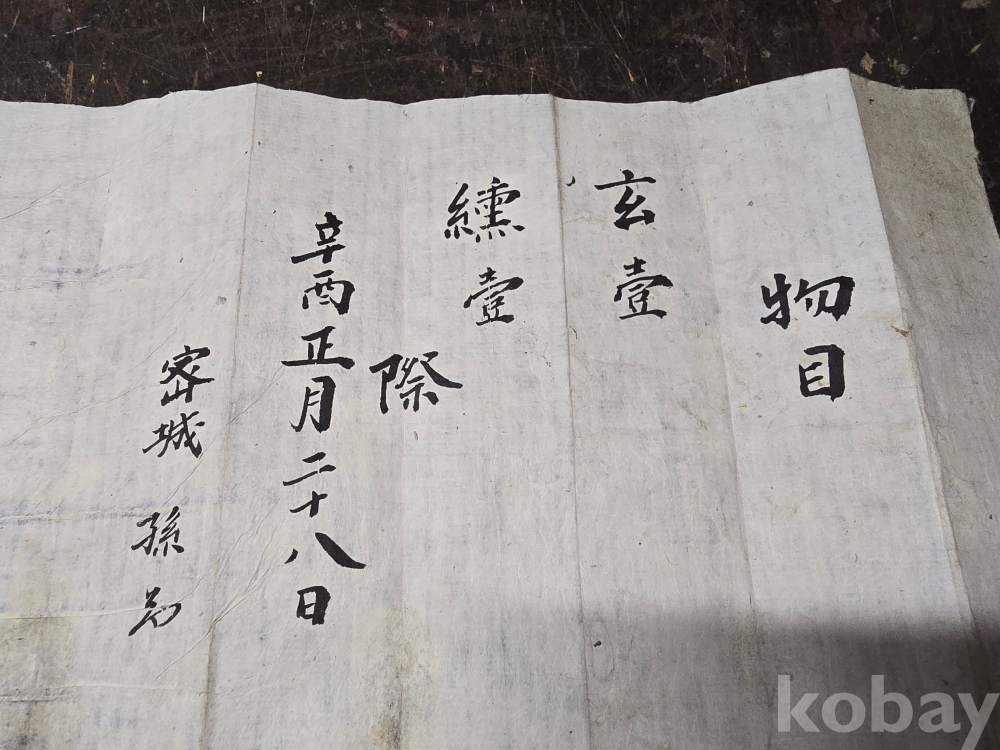 物目
玄壹
纁壹
際
辛酉正月二十八日
密城 孫
kobay